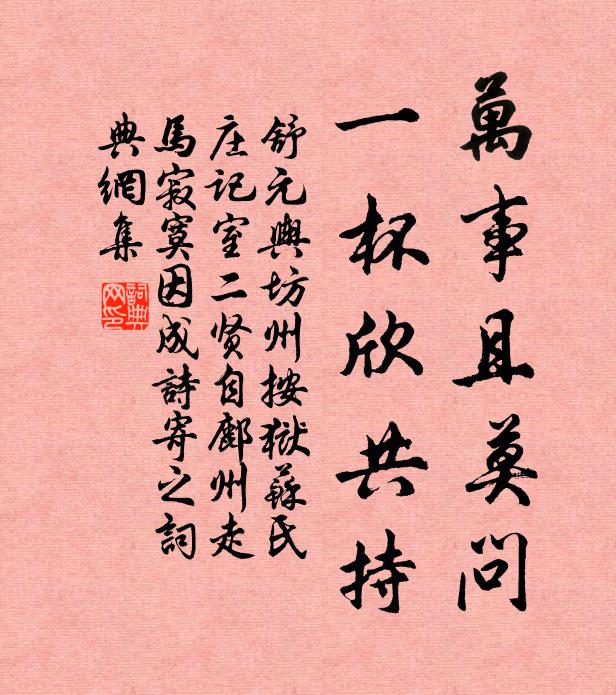 萬事且莫問
一杯欣共持
舒元輿坊州按獄蘇氏
庄记室二贤自鄜州走
馬寂寞因成詩寄之詞
典網集
詞典網印